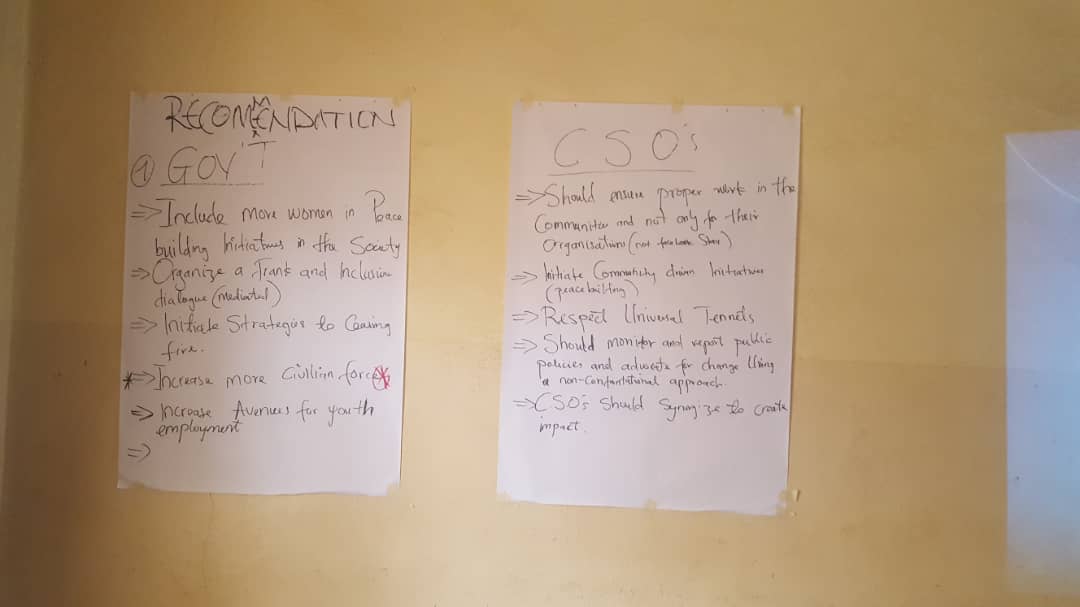 RECOMMENDATION
① GOV'T
=> Include more women in Peace
building Initiatives in the Society
=> Organize a Frank and Inclusive
dialogue (mediated)
=> Initiate Strategies to Ceasing
fire.
*=> Increase more Civillian force*
=> Increase Avenues for youth
employment
=>
CSO's
=> Should ensure proper work in the
Communities and not only for their
Organisations (not
=> Initiate Community driven Initiatives
(peacebuilding)
=> Respect Universal Tennets
=> Should monitor and report public
policies and advocate for change Using
a non-confrontational approach.
=> CSO's Should Synergize to create
impact.